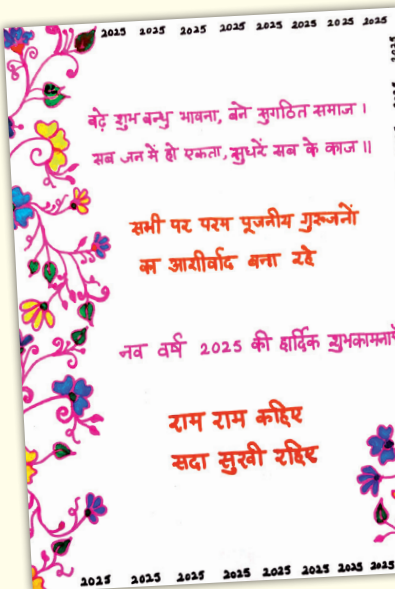 2025 2025 2025 2025 2025 2025 2025 2025
2025
बढ़े शुभ बन्धु भावना, बने सुगठित समाज ।
सब जन में हो एकता, सुधरें सब के काज ॥
सभी पर परम पूजनीय गुरुजनों
का आशीर्वाद बना रहे
नव वर्ष 2025 की हार्दिक शुभकामनाएँ
राम राम कहिए
सदा सुखी रहिए
2025 2025 2025 2025 2025 2025 2025 2025